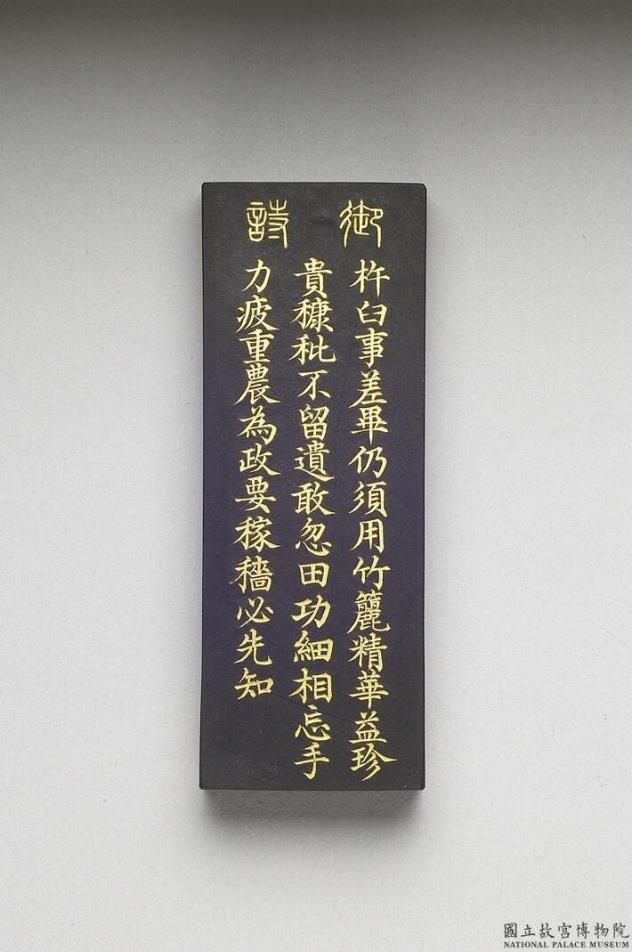 御詩
杵臼事差畢仍須用竹籭精華益珍
貴糠秕不留遺敢忽田功細相忘手
力疲重農為政要稼穡必先知
國立故宮博物院
NATIONAL PALACE MUSEUM